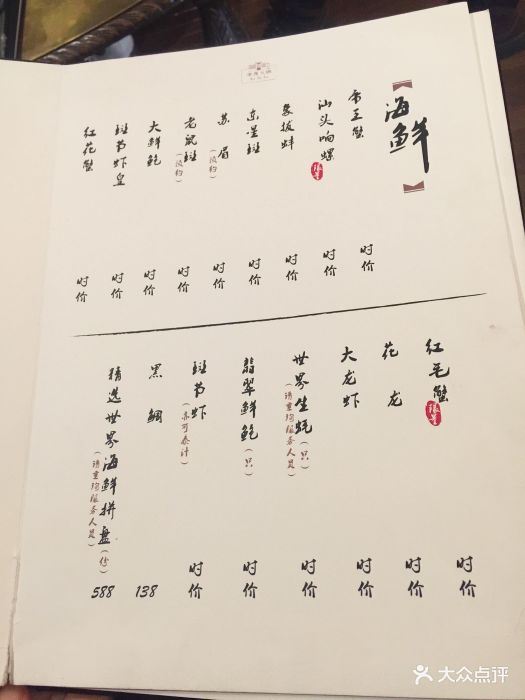 【海鲜】
帝王蟹 时价
汕头响螺 时价
象拔蚌 时价
东星斑 时价
苏眉(预约) 时价
老鼠斑(预约) 时价
大鲜鲍 时价
斑节虾皇 时价
红花蟹 时价
红毛蟹 时价
花龙 时价
大龙虾 时价
世界生蚝(只)(请查询服务人员) 时价
翡翠鲜鲍(只) 时价
斑节虾(亦可泰汁) 时价
黑鲷 138
精选世界海鲜拼盘(份)(请查询服务人员) 588
大众点评